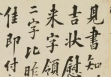 見書知
吉狀慰
朱字領
二字比
佳即付